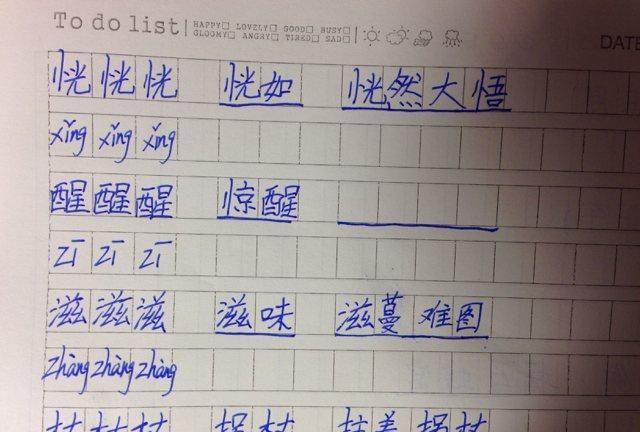 To do list HAPPY□ LOVELY□ GOOD□ BUSY□
GLOOMY□ ANGRY□ TIRED□ SAD□
DATE
恍 恍 恍 恍如 恍然大悟
xǐng xǐng xǐng
醒 醒 醒 惊醒
zī zī zī
滋 滋 滋 滋味 滋蔓难图
zhàng zhàng zhàng